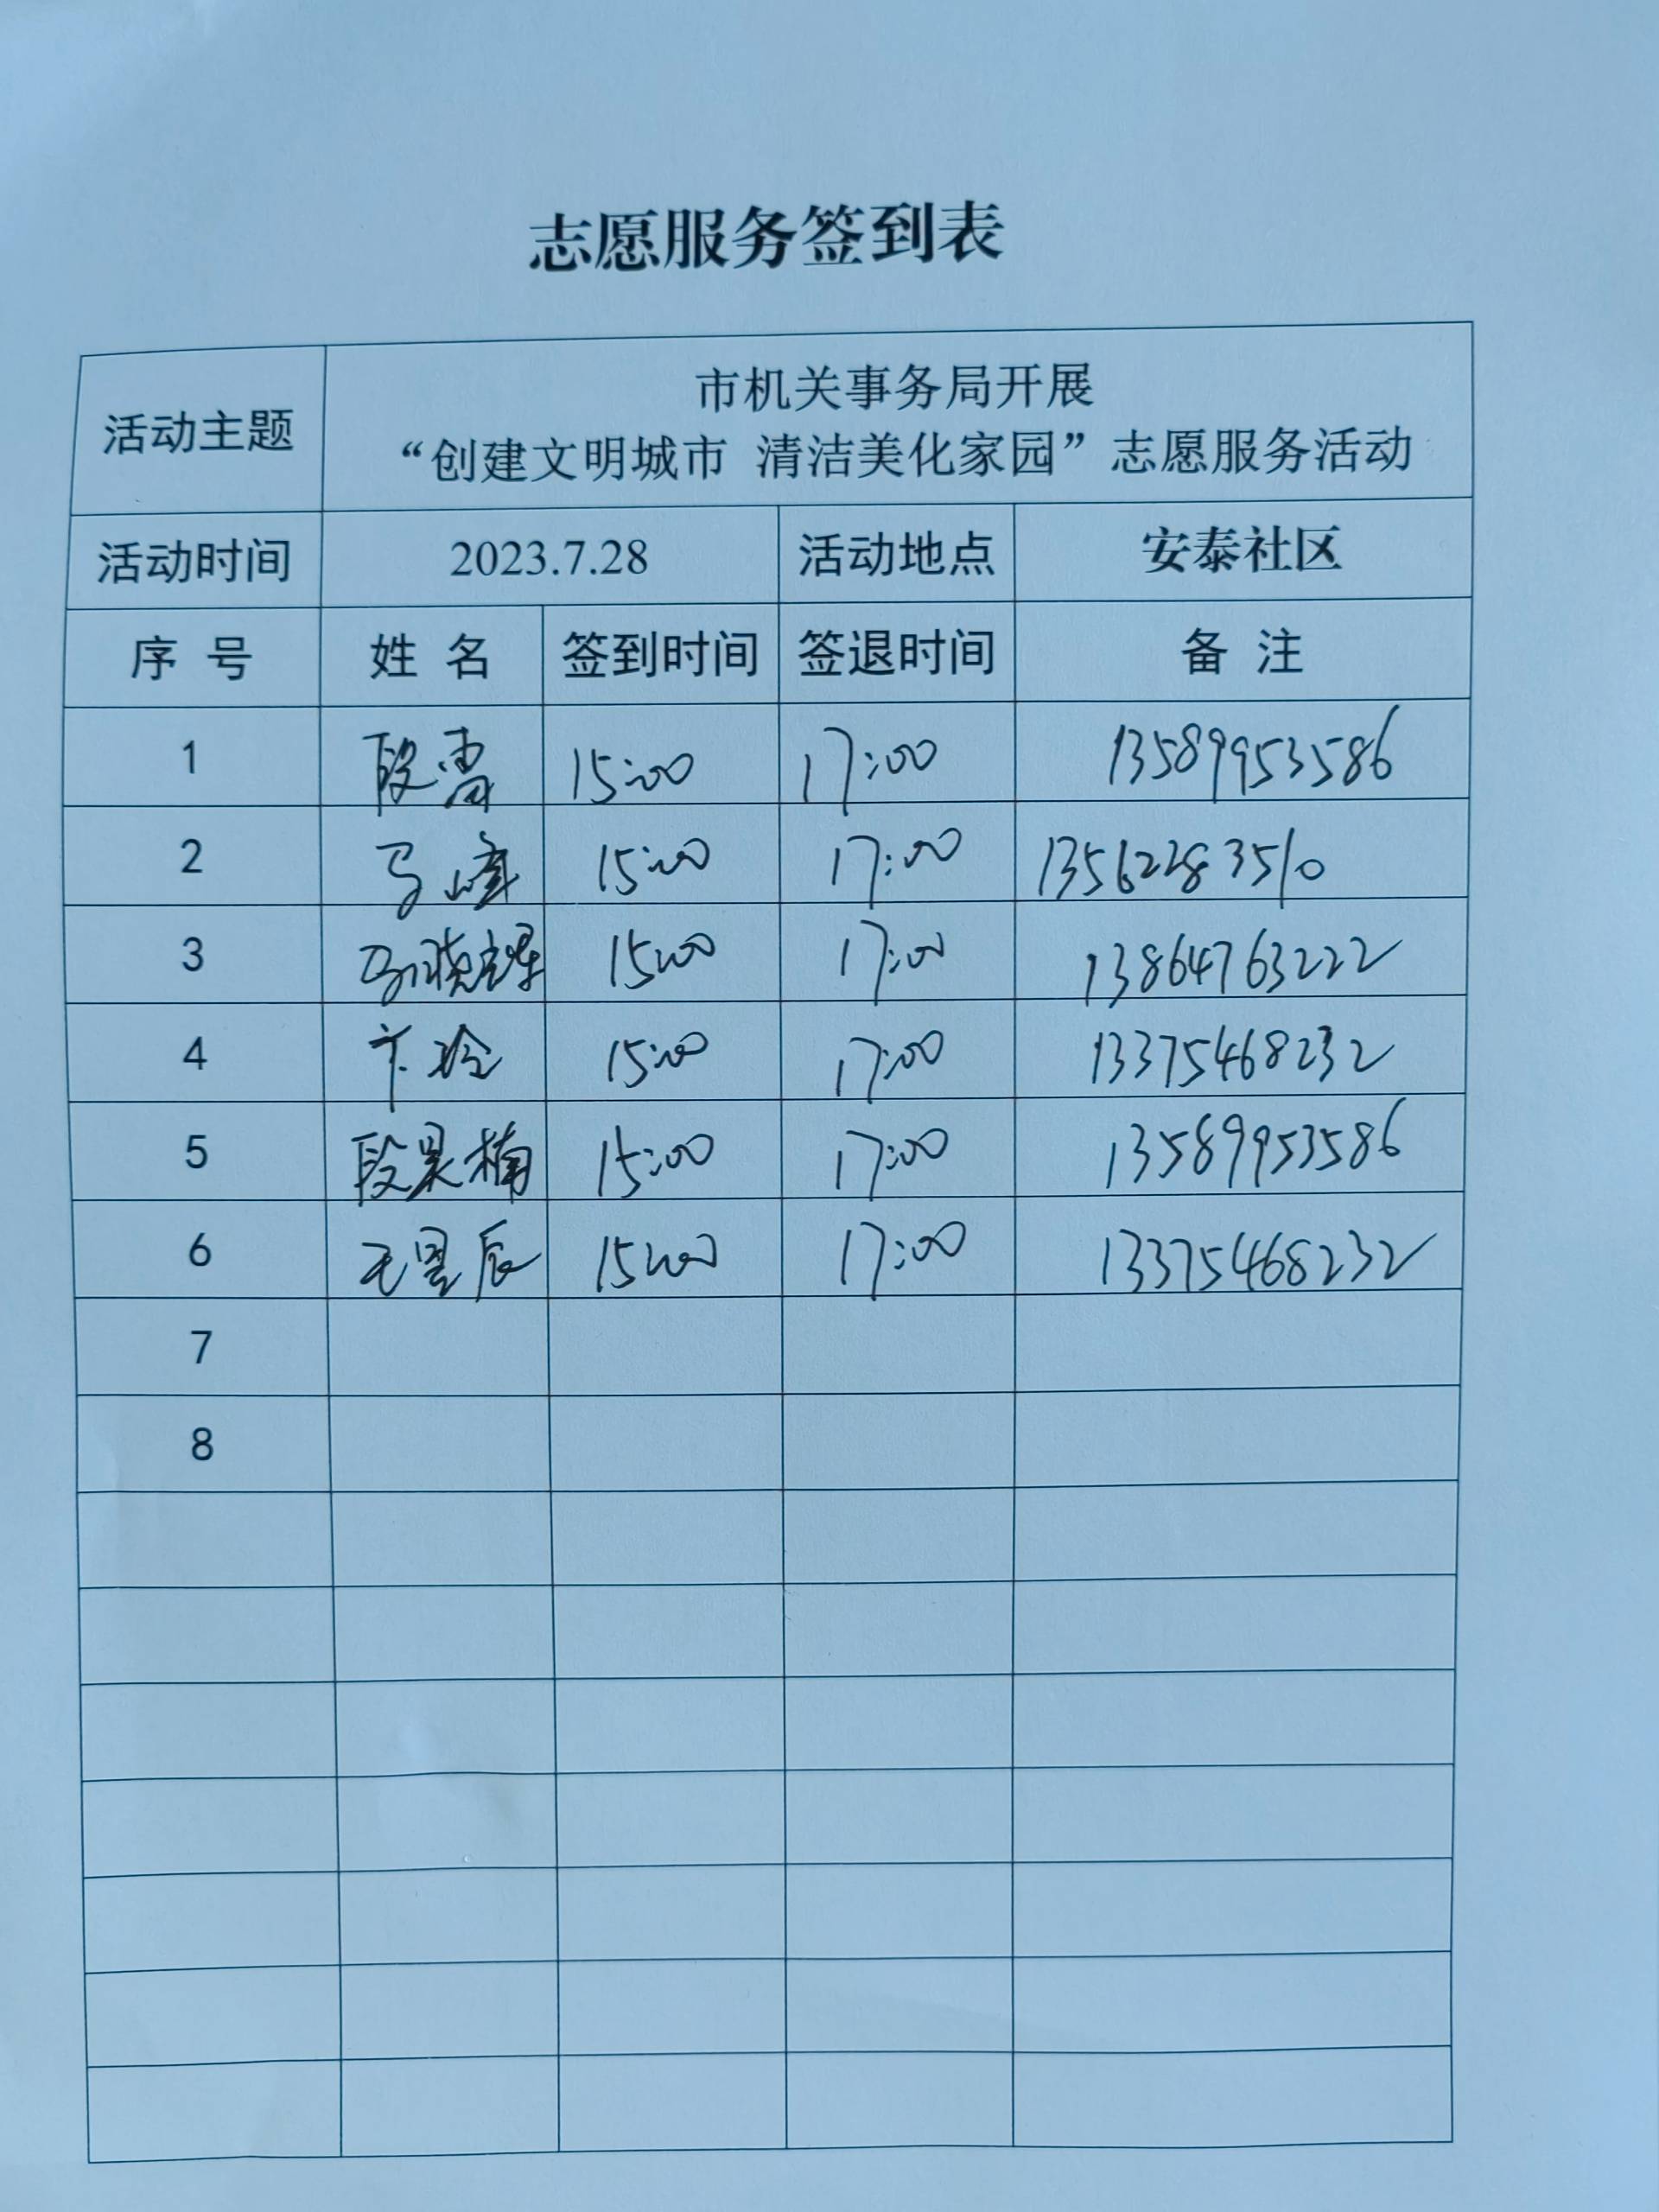 志愿服务签到表
活动主题
市机关事务局开展
“创建文明城市 清洁美化家园”志愿服务活动
活动时间 2023.7.28 活动地点 安泰社区
序 号 姓 名 签到时间 签退时间 备 注
1 段 15:00 17:00 13589953586
2 马峰 15:00 17:00 13562283510
3 马晓辉 15:00 17:00 13864763222
4 卞玲 15:00 17:00 13375468232
5 段昊楠 15:00 17:00 13589953586
6 王星辰 15:00 17:00 13375468232
7
8